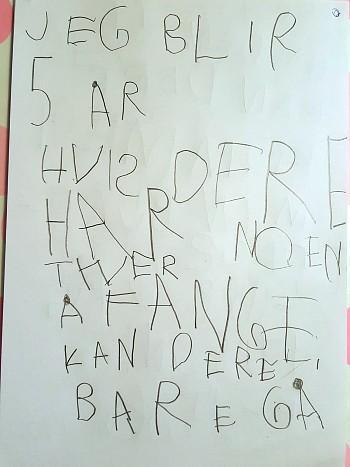 JEG BLIR
5 ÅR
HVIS DERE
HAR NOEN
THVER
Å FANGE
KAN DERE
BARE GÅ